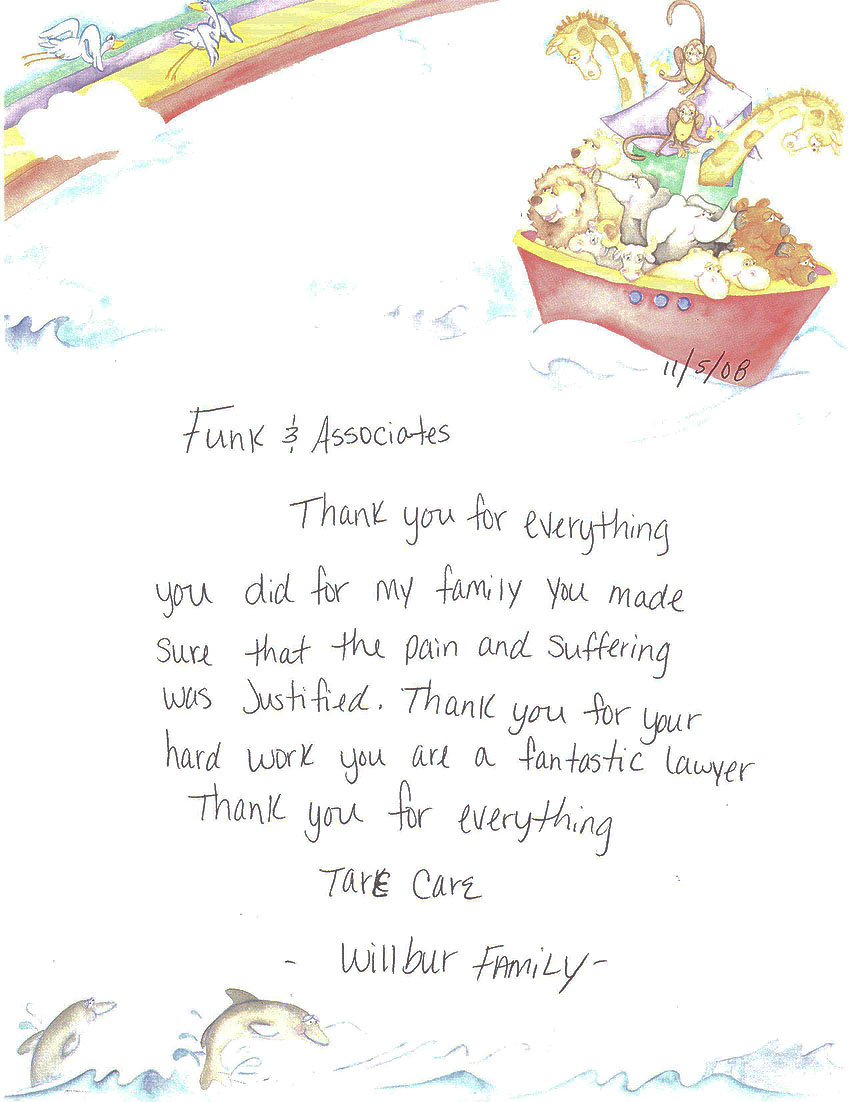 11/5/08
Funk & Associates
Thank you for everything
you did for my family you made
sure that the pain and suffering
was Justified. Thank you for your
hard work you are a fantastic lawyer
Thank you for everything
Take Care
- Willbur Family -